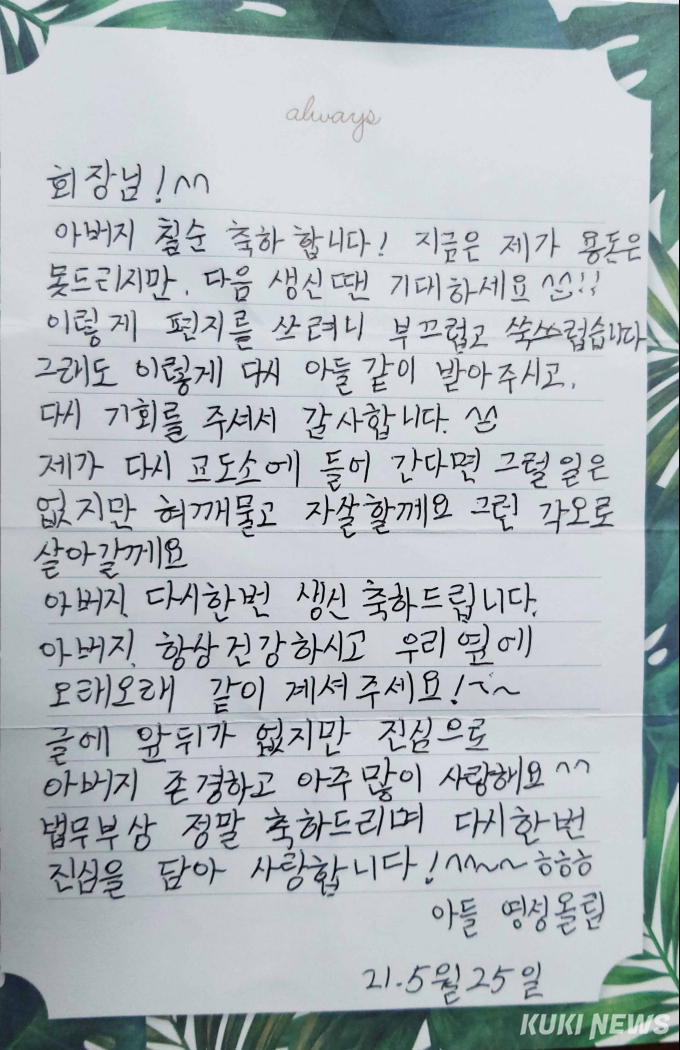 always
회장님!^^
아버지 칠순 축하 합니다! 지금은 제가 용돈은
못드리지만. 다음 생신땐 기대하세요 ^^!!
이렇게 편지를 쓰려니 부끄럽고 쑥쓰럽습니다
그래도 이렇게 다시 아들 같이 받아주시고.
다시 기회를 주셔서 감사합니다. ^^
제가 다시 교도소에 들어 간다면 그럴일은
없지만 혀깨물고 자살할께요 그런 각오로
살아갈께요
아버지. 다시한번 생신 축하드립니다.
아버지. 항상건강하시고 우리 옆에
오래오래 같이 계셔주세요!~~
글에 앞뒤가 없지만 진심으로
아버지 존경하고 아주많이 사랑해요 ^^
법무부상 정말 축하드리며 다시한번
진심을 담아 사랑합니다!^^~~ ㅎㅎㅎ
아들 영성올림
21.5월25일
KUKI NEWS